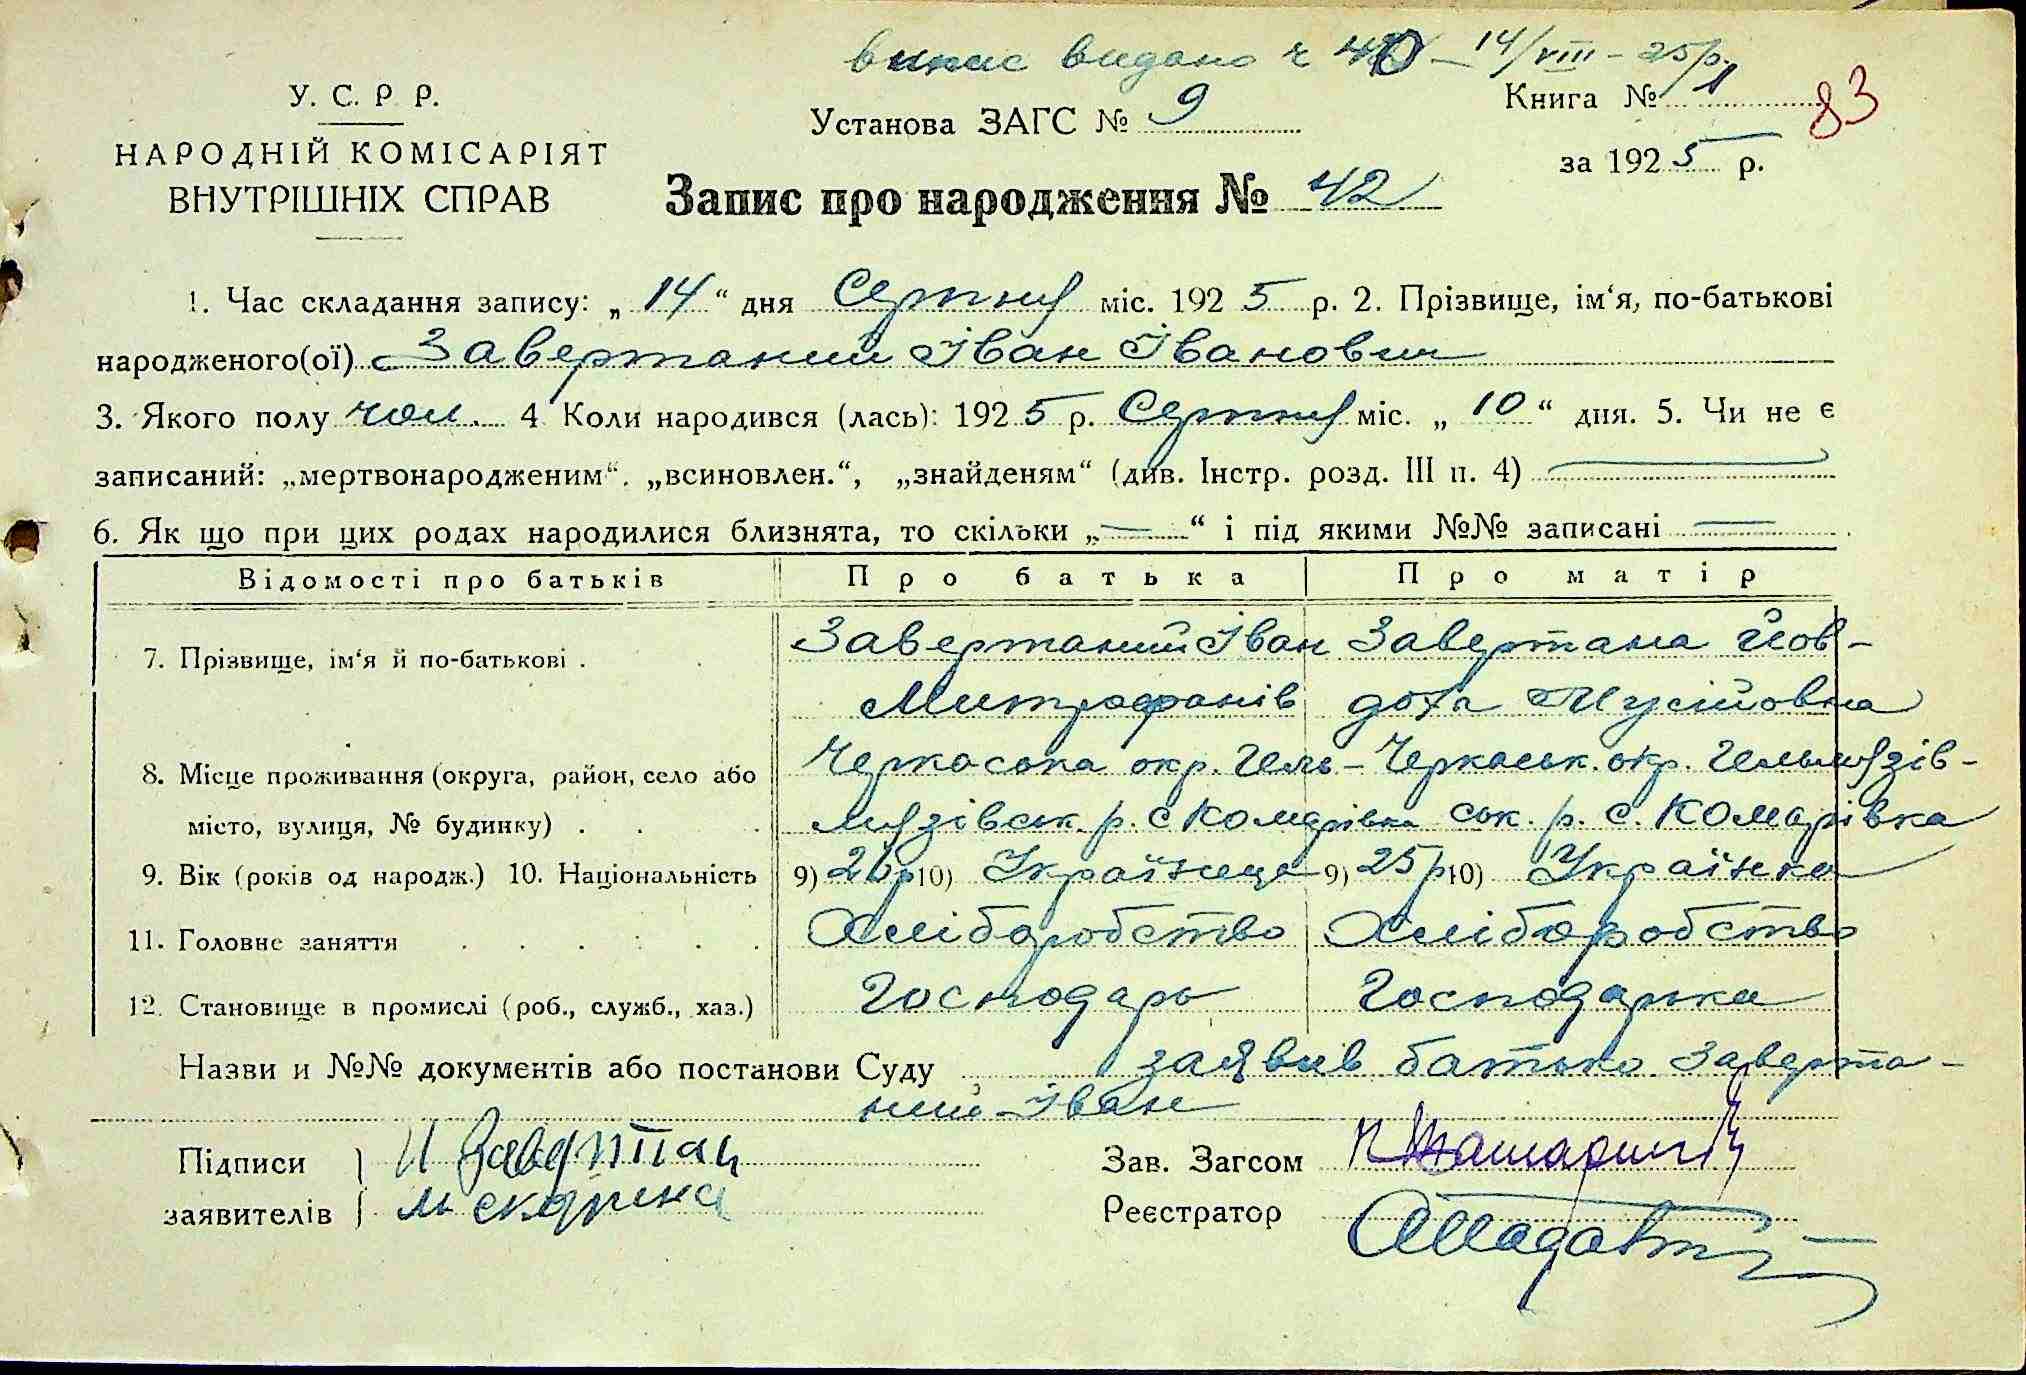 випис видано ч 40 – 14/VIII – 25 р.
У. С. Р Р.
Установа ЗАГС № 9
Книга № 1
83
НАРОДНІЙ КОМІСАРІЯТ
ВНУТРІШНІХ СПРАВ
за 1925 р.
Запис про народження № 42
1. Час складання запису: „ 14 “ дня Серпня міс. 1925 р. 2. Прізвище, ім‘я, по-батькові
народженого(ої) Завертаний Іван Іванович
3. Якого полу чол. 4 Коли народився (лась): 1925 р. Серпня міс. „ 10 “ дня. 5. Чи не є
записаний: „мертвонародженим“. „всиновлен.“, „знайденям“ (див. Інстр. розд. III п. 4) —
6. Як що при цих родах народилися близнята, то скільки „ — “ і під якими №№ записані —
Відомості про батьків Про батька Про матір
7. Прізвище, ім‘я й по-батькові . Завертаний Іван Завертана Йов-
Митрофанів доха Мусійовна
8. Місце проживання (округа, район, село або Черкаська окр. Гель- Черкаськ. окр. Гельмязів-
місто, вулиця, № будинку) . . . мязівськ. р. с Комарівка ськ. р. с. Комарівка
9. Вік (років од народж.) 10. Національність 9) 26 р 10) Українець 9) 25 р 10) Українка
11. Головне заняття . . . . . . Хліборобство Хліборобство
12. Становище в промислі (роб., служб., хаз.) Господарь Господарка
Назви и №№ документів або постанови Суду заявив батько Заверта-
ний Іван
Підписи И Завертан
Зав. Загсом
заявителів
Реєстратор